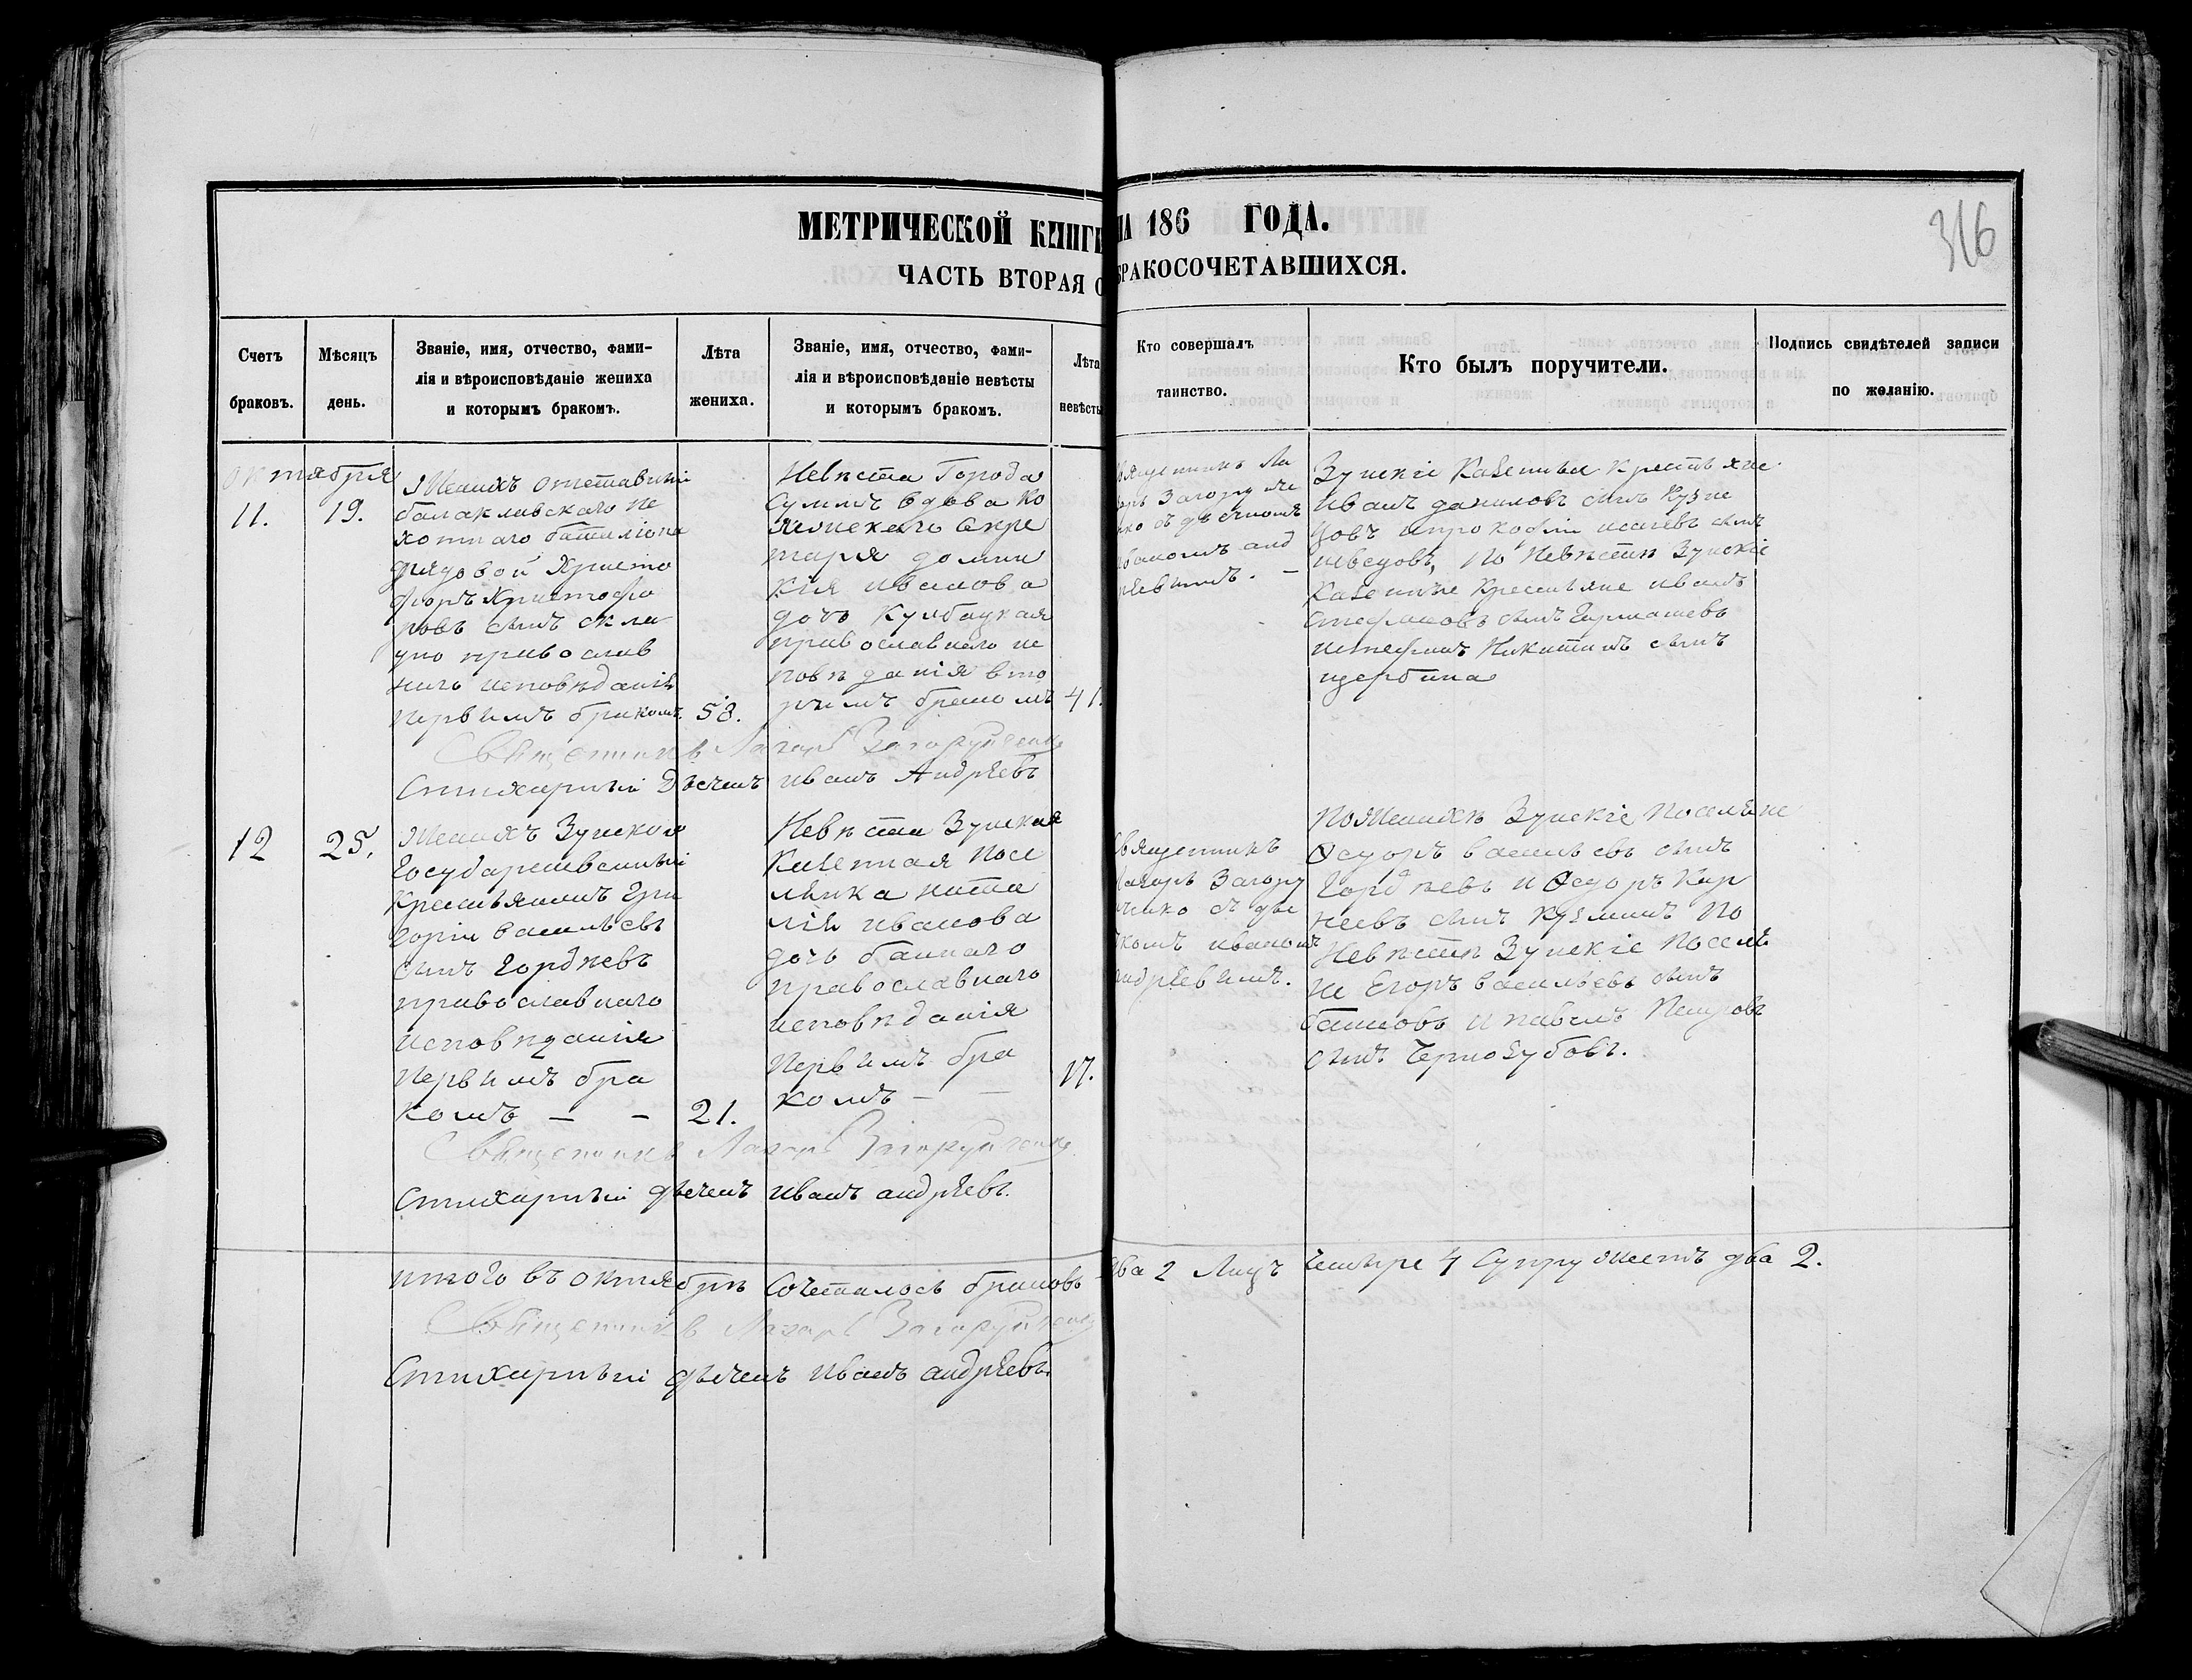 МЕТРИЧЕСКОЙ КНИГИ НА 186 ГОДА.
316
ЧАСТЬ ВТОРАЯ О БРАКОСОЧЕТАВШИХСЯ.
Счетъ
браковъ.
Мѣсяцъ
день.
Званіе, имя, отчество, фами-
лія и вѣроисповѣданіе жениха
и которымъ бракомъ.
Лѣта
жениха.
Званіе, имя, отчество, фами-
лія и вѣроисповѣданіе невѣсты
и которымъ бракомъ.
Лѣта
невѣсты
Кто совершалъ
таинство.
Кто былъ поручители.
Подпись свидѣтелей записи
по желанію.
октября
11.
19.
Женихъ отставный
балаклавскаго пе
хотнаго баталіона
рядовой Христо
форъ Христофо
ровъ сынъ
православ
наго исповѣданія
первымъ бракомъ.
58.
Невѣста Города
Сумъ вдова ко
секре
таря домни
кія иванова
дочь Кулбацкая
православнаго ис
повѣданія вто
рымъ бракомъ
41.
священникъ Ла
зарь Загоруй
ко съ дьячкомъ
Иваномъ анд
рѣевымъ. —
Зуйскіе Казенные крестьяне
Иванъ даниловъ сынъ Кузне
цовъ и прокофій исаевъ сынъ
шведовъ, По Невѣсти Зуйскіе
Казенные Крестьяне иванъ
Стефановъ сынъ
истефанъ Никитинъ сынъ
щербина
Священникъ Лазарь Загоруйченко
Стихарный Дьячекъ иванъ Андрѣевъ
12
25.
Женихъ Зуйской
Государственный
Крестьянинъ Гри
горій васильевъ
сынъ Гордѣевъ
православнаго
исповѣданія
Первымъ бра
комъ — —
21.
Невѣста Зуйская
Казенная Посе
лянка ната
лія иванова
дочь
православнаго
исповѣданія
Первымъ бра
комъ — —
17.
священникъ
Лазарь Загору
ченко съ дья
чкомъ иваномъ
андрѣевымъ.
По Женихѣ Зуйскіе Поселяне
Ѳедоръ васильевъ сынъ
Гордѣевъ и Ѳедоръ Кор
неевъ сынъ Кузминъ По
Невѣсти Зуйскіе Поселя
не Егоръ васильевъ сынъ
башновъ и павелъ Петровъ
сынъ Чернозубовъ.
Священникъ Лазарь Загоруйченко
Стихарный дьячекъ иванъ андрѣевъ.
итого въ октябрѣ Сочеталось браковъ два 2 Лицъ четыре 4 Супружествъ два 2.
Священникъ Лазарь Загоруйченко
Стихарный дьячекъ иванъ андрѣевъ.